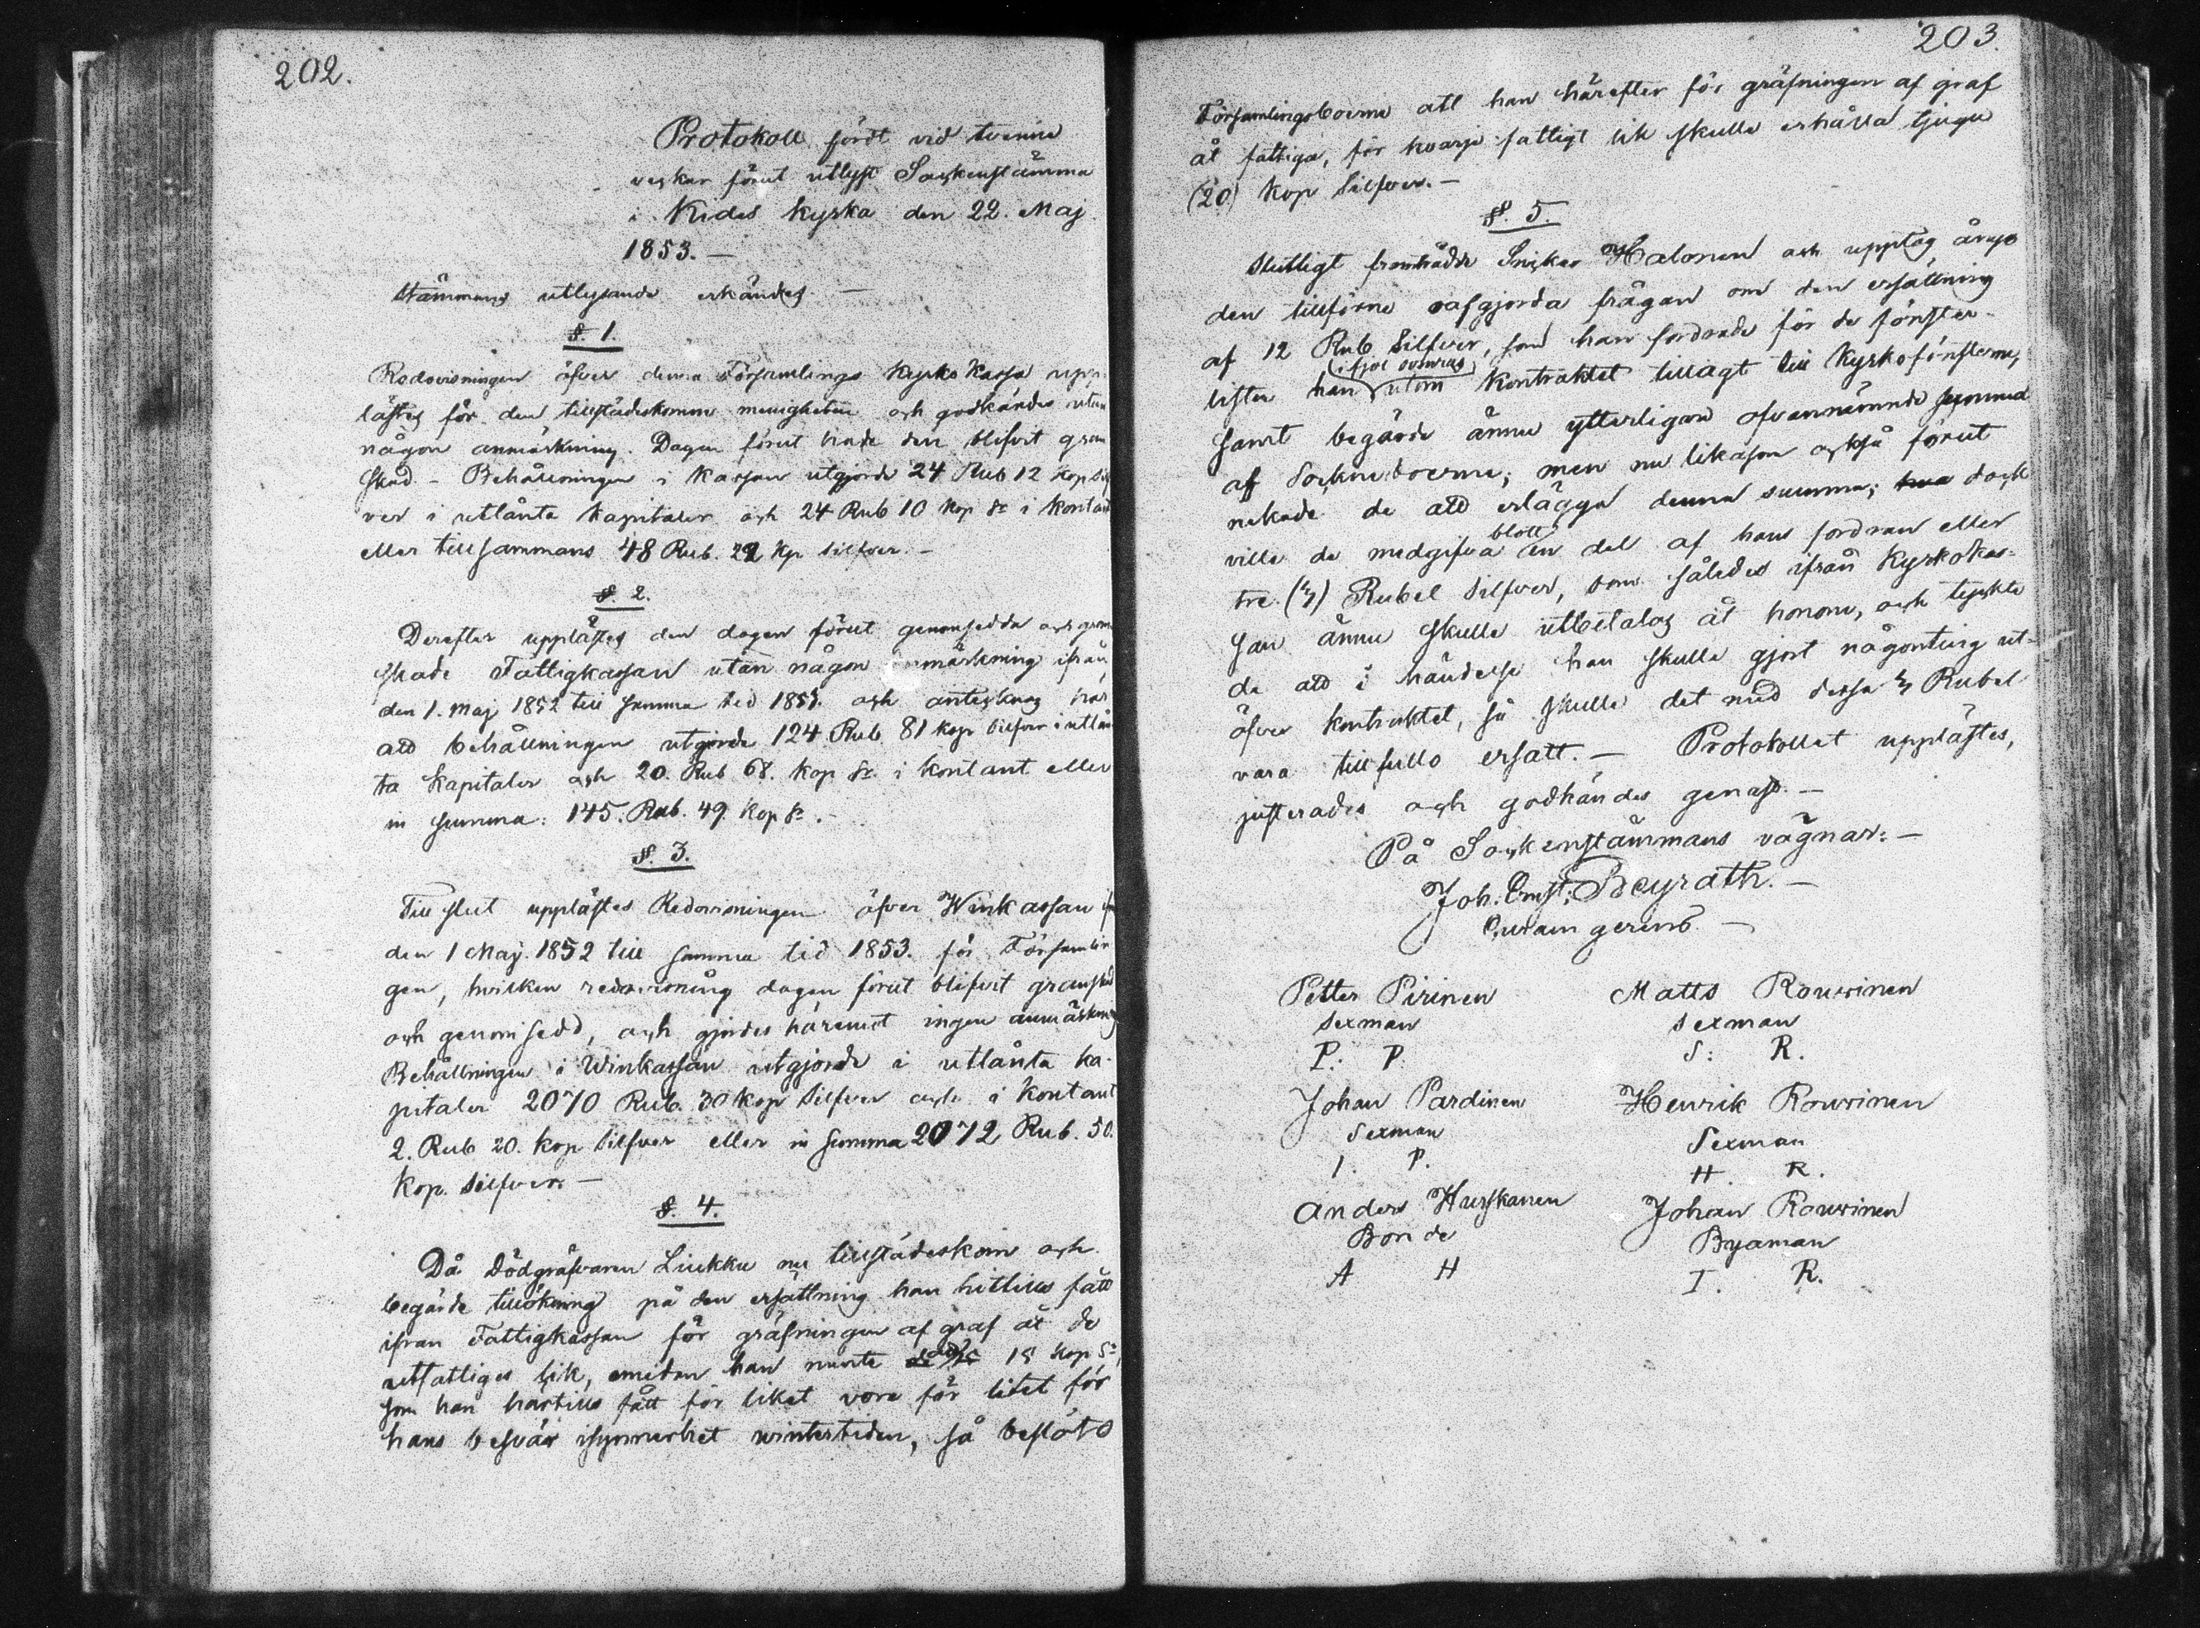 202.
Protokoll, fördt vid tvenne
veckor förut utlyst Sockenstämma
i Kides kyrka den 22. Maj
1853. —
Stämmans utlysande erkändes. —
§. 1.
Redovisningen öfver denna Församlings Kyrko Kassa upp-
lästes för den tillstädeskomne menigheten och godkändes utan
någon anmärkning. Dagen förut hade den blifvit gran
skad. – Behållningen i Kassan utgjorde 24 Rub 12 Kop Silf
ver i utlånta Kapitaler och 24 Rub 10 Kop Sr i Kontant
eller tillsammans 48 Rub. 22 Kp Silfver. —
§. 2.
Derefter upplästes den dagen förut genomsedda och gran
skade Fattigkassan utan någon anmärkning ifrån
den 1. Maj 1852 till samma tid 1853. och antecknas här
att behållningen utgjorde 124 Rub 81 kop Silfver i utlån
ta Kapitaler och 20. Rub 68. Kop Sr. i Kontant eller
in summa: 145. Rub. 49 Kop Sr. –
§. 3.
Till slut upplästes Redovisningen öfver Winkassan ifr
den 1 Maj 1852 till samma tid 1853. för Församlin
gen, hvilken redovisning dagen förut blifvit granskad
och genomsedd, och gjordes häremot ingen anmärkning
Behållningen i Winkassan utgjorde i utlånta ka-
pitaler 2070 Rub. 30 kop Silfver och i Kontant
2. Rub 20. kop Silfver eller in summa 2072 Rub. 50.
Kop. Silfver. —
§. 4.
Då Dödgräfvaren Liukku nu tillstädeskom och
begärde tillökning på den ersättning han hittills fått
ifrån Fattigkassan för gräfningen af graf åt de
utfattiges lik, emedan han mente att 15 Kop Sr,
som han härtills fått för liket vore för litet för
hans besvär isynnerhet vintertiden, så beslöto
203.
Församlingsboerne att han härefter för gräfningen af graf
åt fattiga, för hvarje fattigt lik skulle erhålla tjugu
(20) Kop Silfver. —
§. 5.
Slutligt framträdde Snickar Halonen och upptog ånyo
den tillförne oafgjorda frågan om den ersättning
af 12 Rub Silfver, som han fordrade för de fönster-
(i fjol somras)
lister han utom Kontraktet tillagt till Kyrkofönsterne,
samt begärde ännu ytterligare ofvannämnde summa
af Sockneboerne; men nu likasom också förut
nekade de att erlägga denna summa; dock
blott
ville de medgifva en del af hans fordran eller
tre (3) Rubel Silfver, som således ifrån Kyrkokas-
san ännu skulle utbetalas åt honom, och tyckte
de att i händelse han skulle gjort någonting ut-
öfver kontraktet, så skulle det med dessa 3 Rubel
vara tillfullo ersatt. — Protokollet upplästes,
justerades och godkändes genast. —
På Sockenstämmans vägnar: —
Joh: Ernst: Beyrath. —
Curam gerens. —
Petter Pirinen
Sexman
P. P.
Matts Rouvinen
Sexman
S: R.
Johan Pardinen
Sexman
I. P.
Henrik Rouvinen
Sexman
H. R.
Anders Hurskanen
Bonde
A H
Johan Rouvinen
Byaman
I. R.